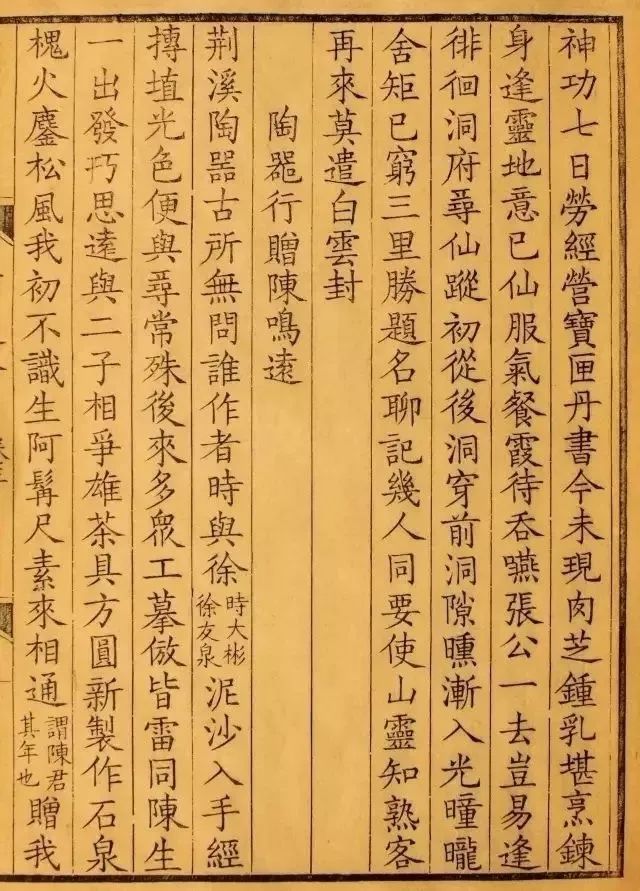 神功七日勞經營寶匣丹書今未現肉芝鍾乳堪烹鍊
身逢靈地意已仙服氣餐霞待吞嚥張公一去豈易逢
徘徊洞府尋仙蹤初從後洞穿前洞隙曛漸入光曈曨
舍矩已窮三里勝題名聊記幾人同要使山靈知熟客
再來莫遣白雲封
陶器行贈陳鳴遠
荆溪陶器古所無問誰作者時與徐時大彬徐友泉泥沙入手經
摶埴光色便與尋常殊後來多衆工摹倣皆雷同陳生
一出發巧思遠與二子相爭雄茶具方圓新製作石泉
槐火鏖松風我初不識生阿髯尺素來相通謂陳君其年也贈我